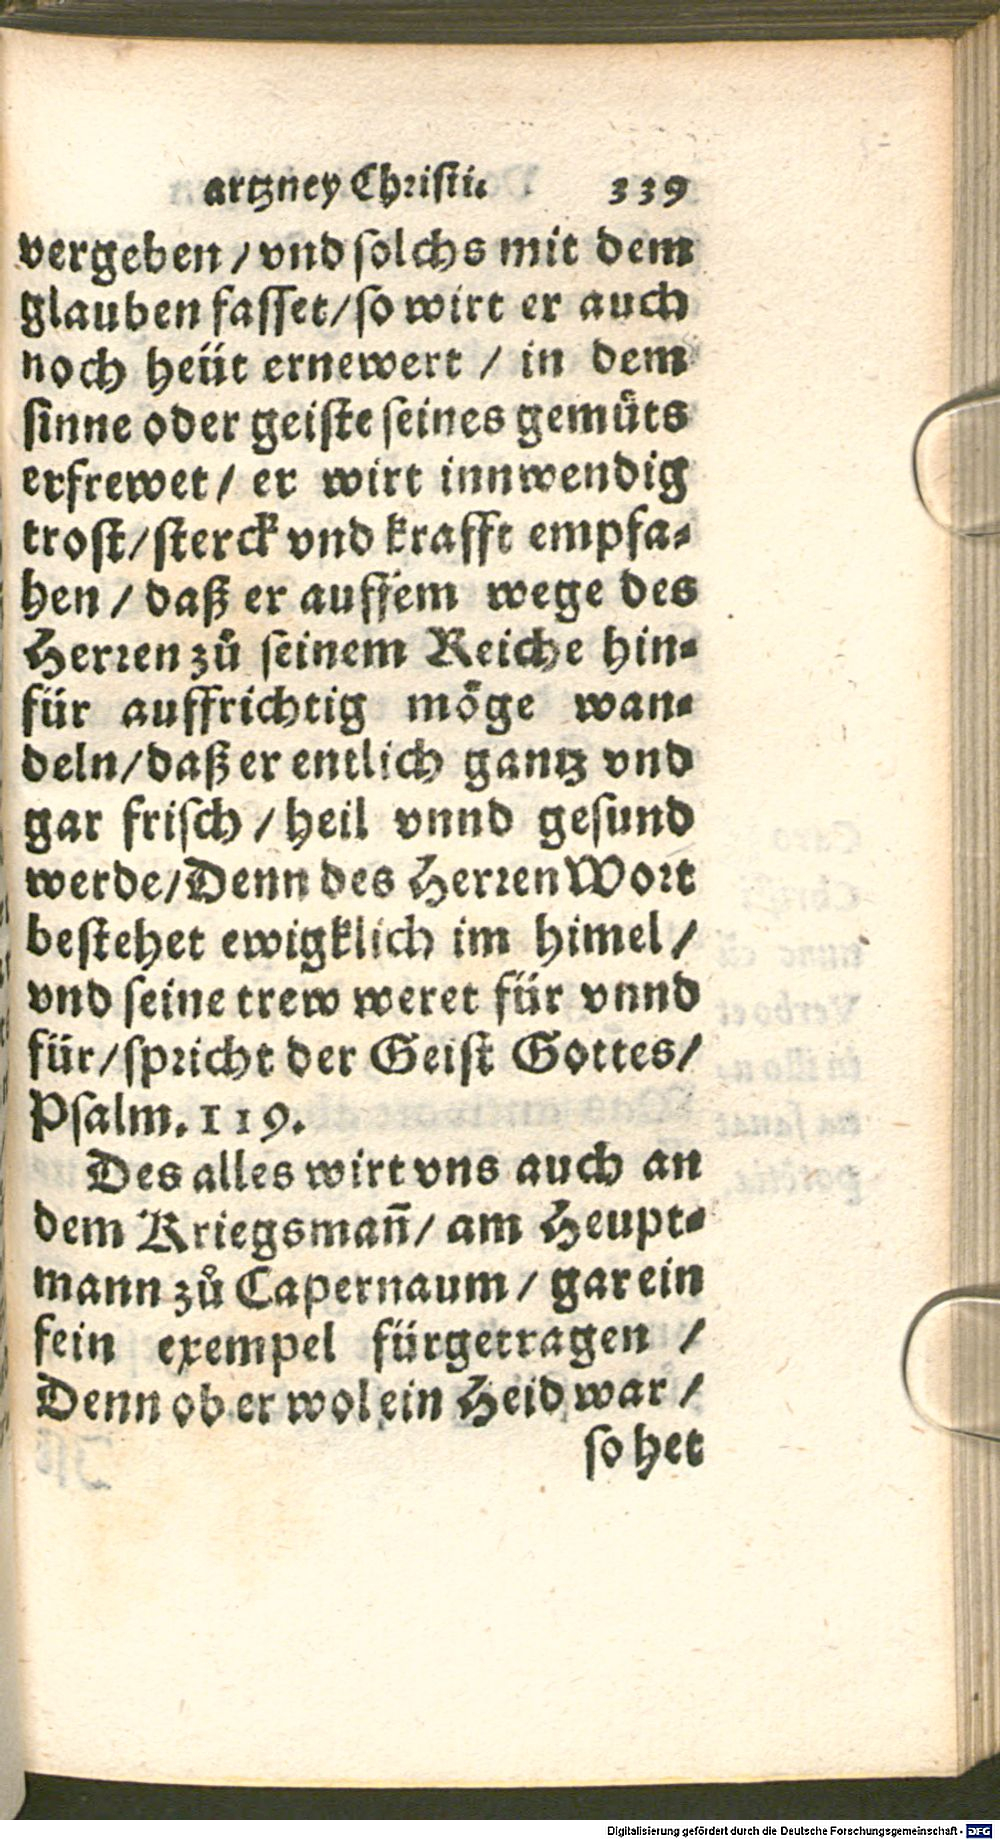 artzney Christi. 339
vergeben / vnd solchs mit dem
glauben fasset / so wirt er auch
noch heüt ernewert / in dem
sinne oder geiste seines gemuͤts
erfrewet / er wirt innwendig
trost / sterck vnd krafft empfa-
hen / daß er auffem wege des
Herren zuͦ seinem Reiche hin-
für auffrichtig moͤge wan-
deln / daß er entlich gantz vnd
gar frisch / heil vnnd gesund
werde / Denn des Herren Wort
bestehet ewigklich im himel /
vnd seine trew weret für vnnd
für / spricht der Geist Gottes /
Psalm. 119.
Des alles wirt vns auch an
dem Kriegsmañ / am Heupt-
mann zuͦ Capernaum / gar ein
fein exempel fürgetragen /
Denn ob er wol ein Heid war /
so het
Digitalisierung gefördert durch die Deutsche Forschungsgemeinschaft - DFG